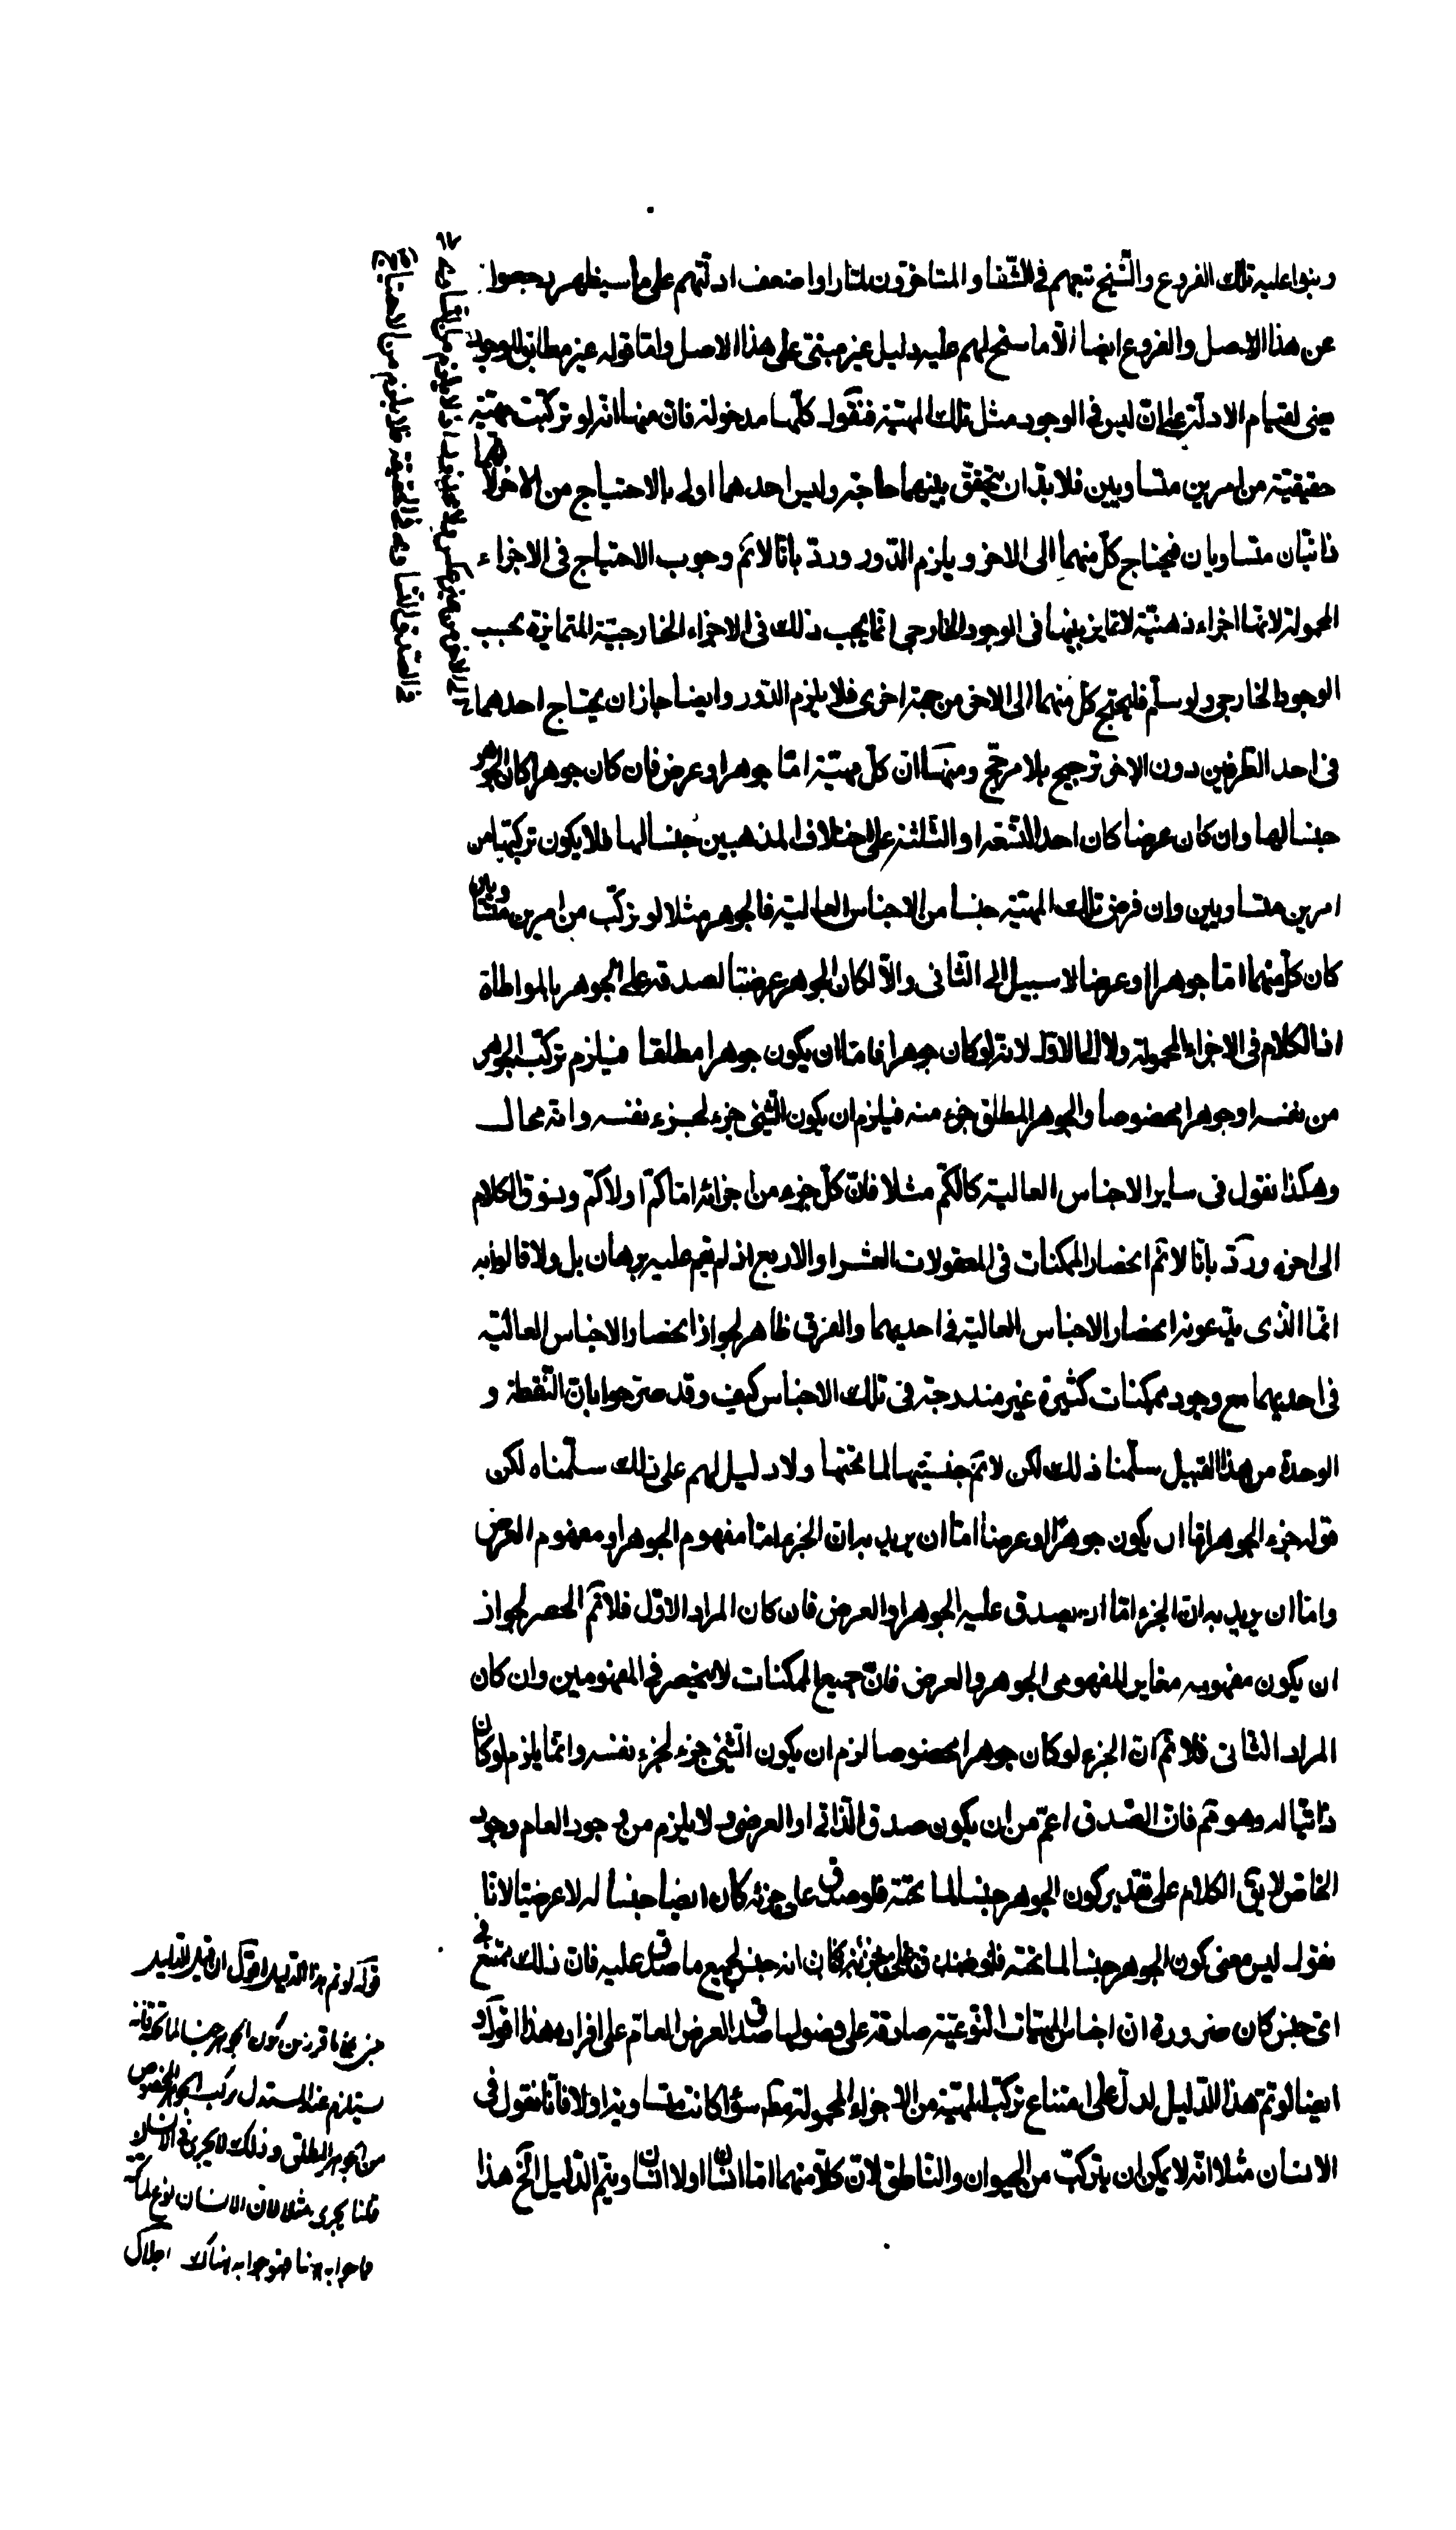 وبنوا عليه تلك الفروع والشيخ تبعهم في الشفا والمتاخرون لما راوا ضعف ادلتهم على ما سيظهر رجعوا
عن هذا الاصل والفروع ايضا الا ما سنح لهم عليه دليل غير مبتنى على هذا الاصل واما قوله غير مطابق للوجود
يعنى لقيام الادلة على ان ليس في الوجود مثل تلك المهية فنقول كلها مدخولة فان منها انه لو تركبت مهية
حقيقية من امرين متساويين فلا بد ان يتحقق بينهما حاجة وليس احدهما اولى بالاحتياج من الاخر لانهما
ذاتيان متساويان فيحتاج كل منهما الى الاخر ويلزم الدور ورد بانا لانم وجوب الاحتياج في الاجزاء
المحمولة لانها اجزاء ذهنية لا تمايز بينها في الوجود الخارجي انما يجب ذلك في الاجزاء الخارجية المتمايزة بحسب
الوجود الخارجي ولو سلم فليحتج كل منهما الى الاخر من جهة اخرى فلا يلزم الدور وايضا جاز ان يحتاج احدهما
الى الاخر من غير عكس
في احد الطرفين دون الاخر ترجيح بلا مرجح ومنها ان كل مهية اما جوهر او عرض فان كان جوهرا كان الجوهر
جنسا لها وان كان عرضا كان احد التسعة او الثلثة على اختلاف المذهبين جنسا لها فلا يكون تركبها من
امرين متساويين وان فرض تلك المهية جنسا من الاجناس العالية فالجوهر مثلا لو تركب من امرين متساويين
كان كل منهما اما جوهرا او عرضا لا سبيل الى الثاني والا لكان الجوهر عرضيا لصدقه على الجوهر بالمواطاة
اذ الكلام في الاجزاء المحمولة ولا الى الاول لانه لو كان جوهرا فاما ان يكون جوهرا مطلقا فيلزم تركب الجوهر
من نفسه او جوهرا مخصوصا والجوهر المطلق جزء منه فيلزم ان يكون الشئ جزء لجزء نفسه وانه محال
وهكذا نقول في ساير الاجناس العالية كالكم مثلا فان كل جزء من اجزائه اما كم او لا كم ونسوق الكلام
الى اخره ورد بانا لانم انحصار الممكنات في المعقولات العشر او الاربع اذ لم يقم عليه برهان بل ولا قالوا به
انما الذى يدعونه انحصار الاجناس العالية في احديهما والفرق ظاهر لجواز انحصار الاجناس العالية
في احديهما مع وجود ممكنات كثيرة غير مندرجة في تلك الاجناس كيف وقد صرحوا بان النقطة و
الوحدة من هذا القبيل سلمنا ذلك لكن لانم جنسيتها لما تحتها ولا دليل لهم على ذلك سلمناه لكن
قوله جزء الجوهر اما ان يكون جوهرا او عرضا اما ان يريد به ان الجزء اما مفهوم الجوهر او مفهوم العرض
واما ان يريد به ان الجزء اما ان يصدق عليه الجوهر او العرض فان كان المراد الاول فلانم الحصر لجواز
ان يكون مفهومه مغاير المفهومى الجوهر والعرض فان جميع الممكنات لا ينحصر في المفهومين وان كان
المراد الثاني فلانم ان الجزء لو كان جوهرا مخصوصا لزم ان يكون الشئ جزء لجزء نفسه وانما يلزم لو كان
ذاتيا له وهو مم فان الصدق اعم من ان يكون صدق الذاتي او العرضى ولا يلزم من وجود العام وجود
الخاص لا يق الكلام على تقدير كون الجوهر جنسا لما تحته فلو صدق على جزئه كان ايضا جنسا له لا عرضيا لانا
نقول ليس معنى كون الجوهر جنسا لما تحته انه جنس لجميع ما صدق عليه فان ذلك ممتنع في
اى جنس كان ضرورة ان اجناس المهيات النوعية صادقة على فصولها صدق العرض العام على افراده هذا اقول و
ايضا لو تم هذا الدليل لدل على امتناع تركب المهية من الاجزاء المحمولة مط سواء كانت متساوية او لا فانا نقول في
الانسان مثلا انه لا يمكن ان يتركب من الحيوان والناطق لان كلا منهما اما انسان او لا انسان ويتم الدليل الخ هذا
فلا يلزم من الاحتياج
قوله لو تم هذا الدليل اقول ان قيل الدليل
مبنى على ما قرر من كون الجوهر جنسا لما تحته فانه
يستلزم عند المستدل تركب الجوهر المخصوص
من الجوهر المطلق وذلك لا يجرى في الانسان
قلنا يجرى مثلا لان الانسان نوع لما تحته
فما جوابه هنا فهو جوابه هناك